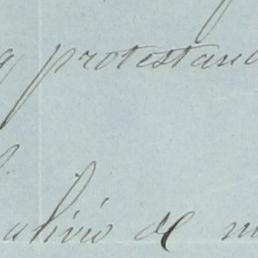 protestan
alivio de